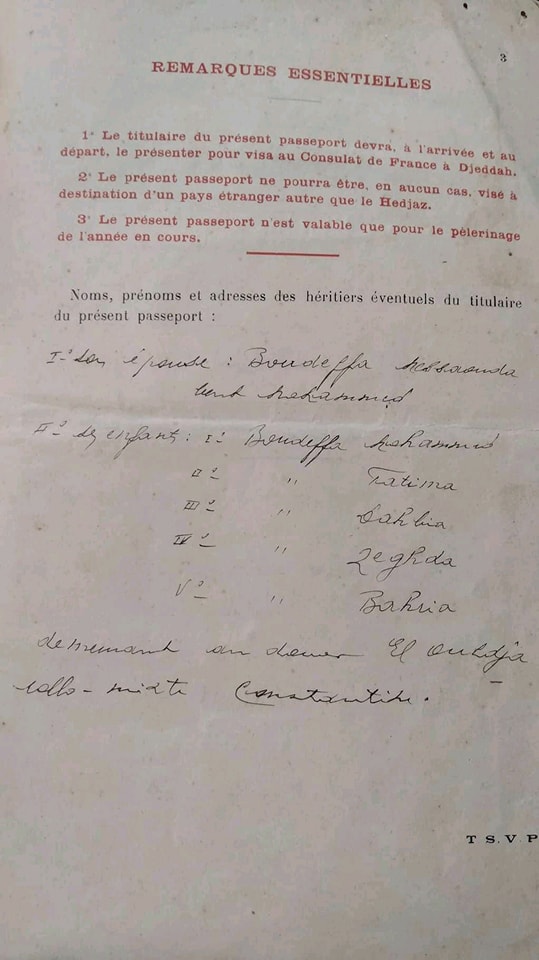 3
REMARQUES ESSENTIELLES
1° Le titulaire du présent passeport devra, à l'arrivée et au
départ, le présenter pour visa au Consulat de France à Djeddah.
2° Le présent passeport ne pourra être, en aucun cas, visé à
destination d'un pays étranger autre que le Hedjaz.
3° Le présent passeport n'est valable que pour le pèlerinage
de l'année en cours.
Noms, prénoms et adresses des héritiers éventuels du titulaire
du présent passeport :
I° Son épouse : Boudeffa Messaouda
bent Mohammed
II° Ses enfants : I° Boudeffa Mohammed
II° " Fatima
III° " Dahbia
IV° " Zeghda
V° " Bahria
demeurant au douar El Ouldja
Collo-mixte Constantine.
T.S.V.P